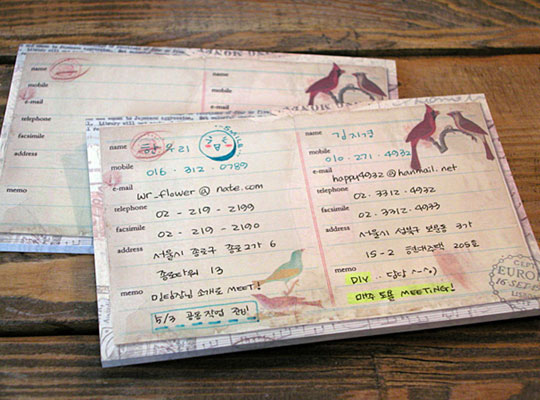 name
mobile
e-mail
telephone
facsimile
address
memo
name
mobile
e-mail
name 한우리
mobile 016 . 312 . 0789
e-mail wr_flower @ nate.com
telephone 02 - 219 - 2199
facsimile 02 - 219 - 2190
address 서울시 종로구 종로2가 6
종로타워 13
memo 소개로 MEET!
5/3 공동작업 준비!
name 김지영
mobile 010 . 271 . 4932
e-mail happy4932@hanmail.net
telephone 02 . 3312 . 4932
facsimile 02 . 3312 . 4933
address 서울시 성북구 보문동 3가
15 - 2 현대주택 205호
memo
DIY
매주 토욜 MEETING!
EURO
16 SEP